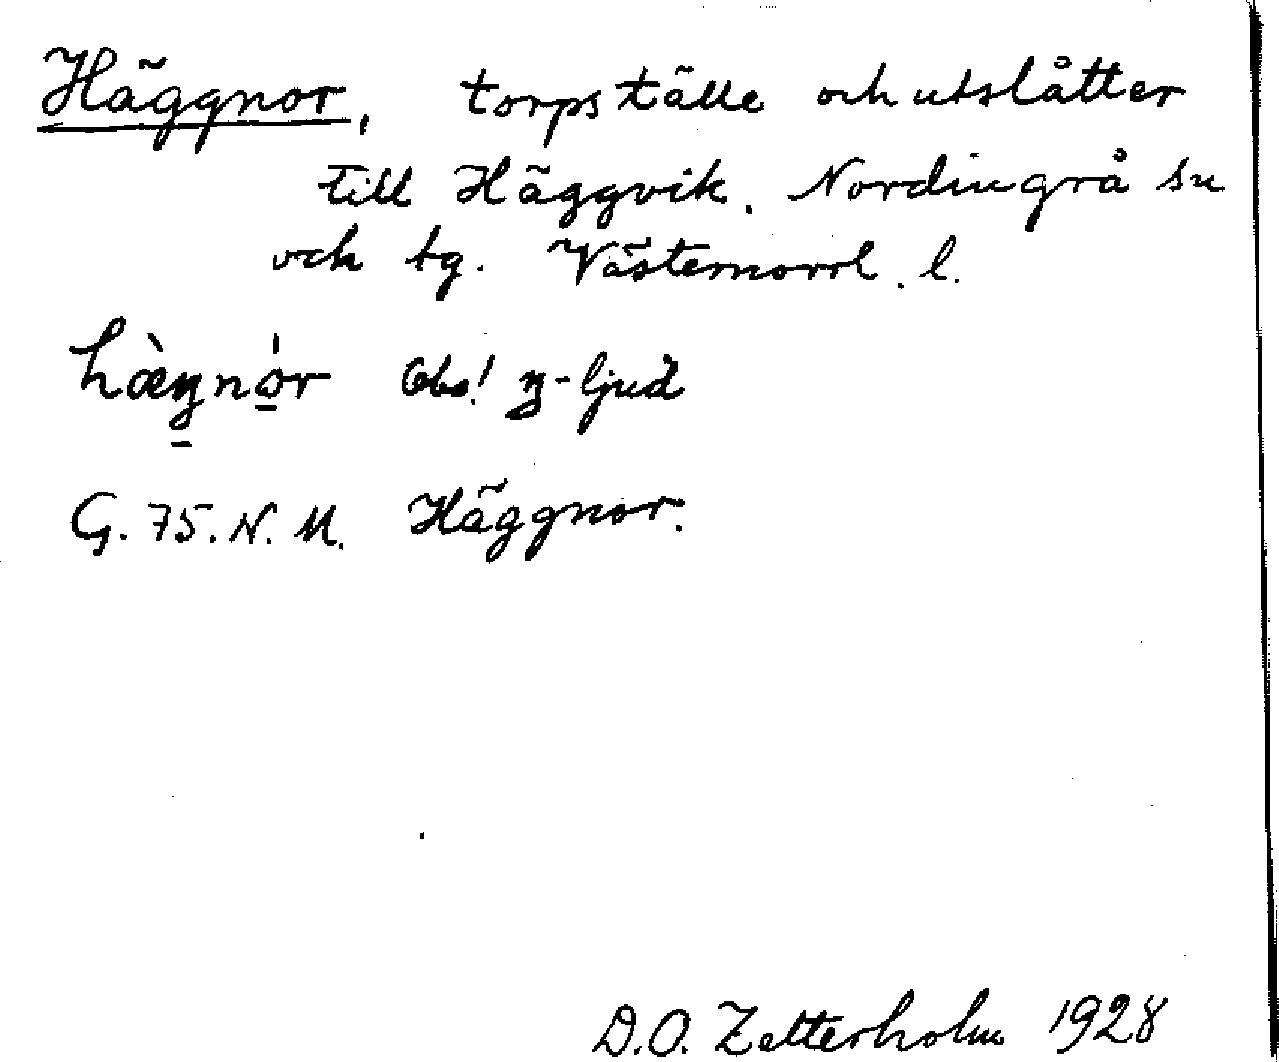 Häggnor, torpställe och utslåtter
till Häggvik. Nordingrå sn
och tg. Västernorrl. l.
hæ̀ŋnór Obs! ŋ-ljud
G. 75. N. M. Häggnor.
D.O. Zetterholm 1928